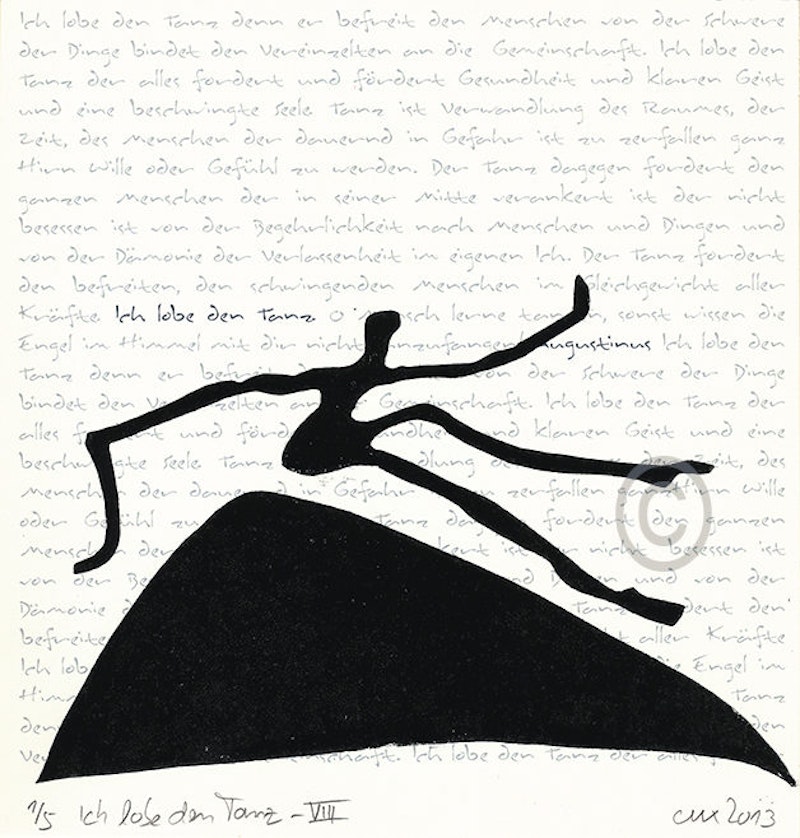 Ich lobe den Tanz denn er befreit den Menschen von der Schwere
der Dinge bindet den Vereinzelten an die Gemeinschaft. Ich lobe den
Tanz der alles fordert und fördert Gesundheit und klaren Geist
und eine beschwingte Seele Tanz ist Verwandlung des Raumes, der
Zeit, des Menschen der dauernd in Gefahr ist zu zerfallen ganz
Hirn Wille oder Gefühl zu werden. Der Tanz dagegen fordert den
ganzen Menschen der in seiner Mitte verankert ist der nicht
besessen ist von der Begehrlichkeit nach Menschen und Dingen und
von der Dämonie der Verlassenheit im eigenen Ich. Der Tanz fordert
den befreiten, den schwingenden Menschen im Gleichgewicht aller
Kräfte Ich lobe den Tanz lerne sonst wissen die
Engel im Himmel mit dir nicht anzufangen Augustinus Ich lobe den
Tanz denn er von der Schwere der Dinge
bindet den an Gemeinschaft. Ich lobe den Tanz der
alles und und klaren Geist und eine
Seele Tanz des
Menschen der in Gefahr zu zerfallen ganz Hirn Wille
oder zu Tanz den ganzen
der ist der nicht besessen ist
von der und von der
Dämonie Tanz den
aller Kräfte
Ich die Engel im
Tanz
den den
Ich lobe den Tanz der alles
1/5 Ich lobe den Tanz - VIII 2013
©